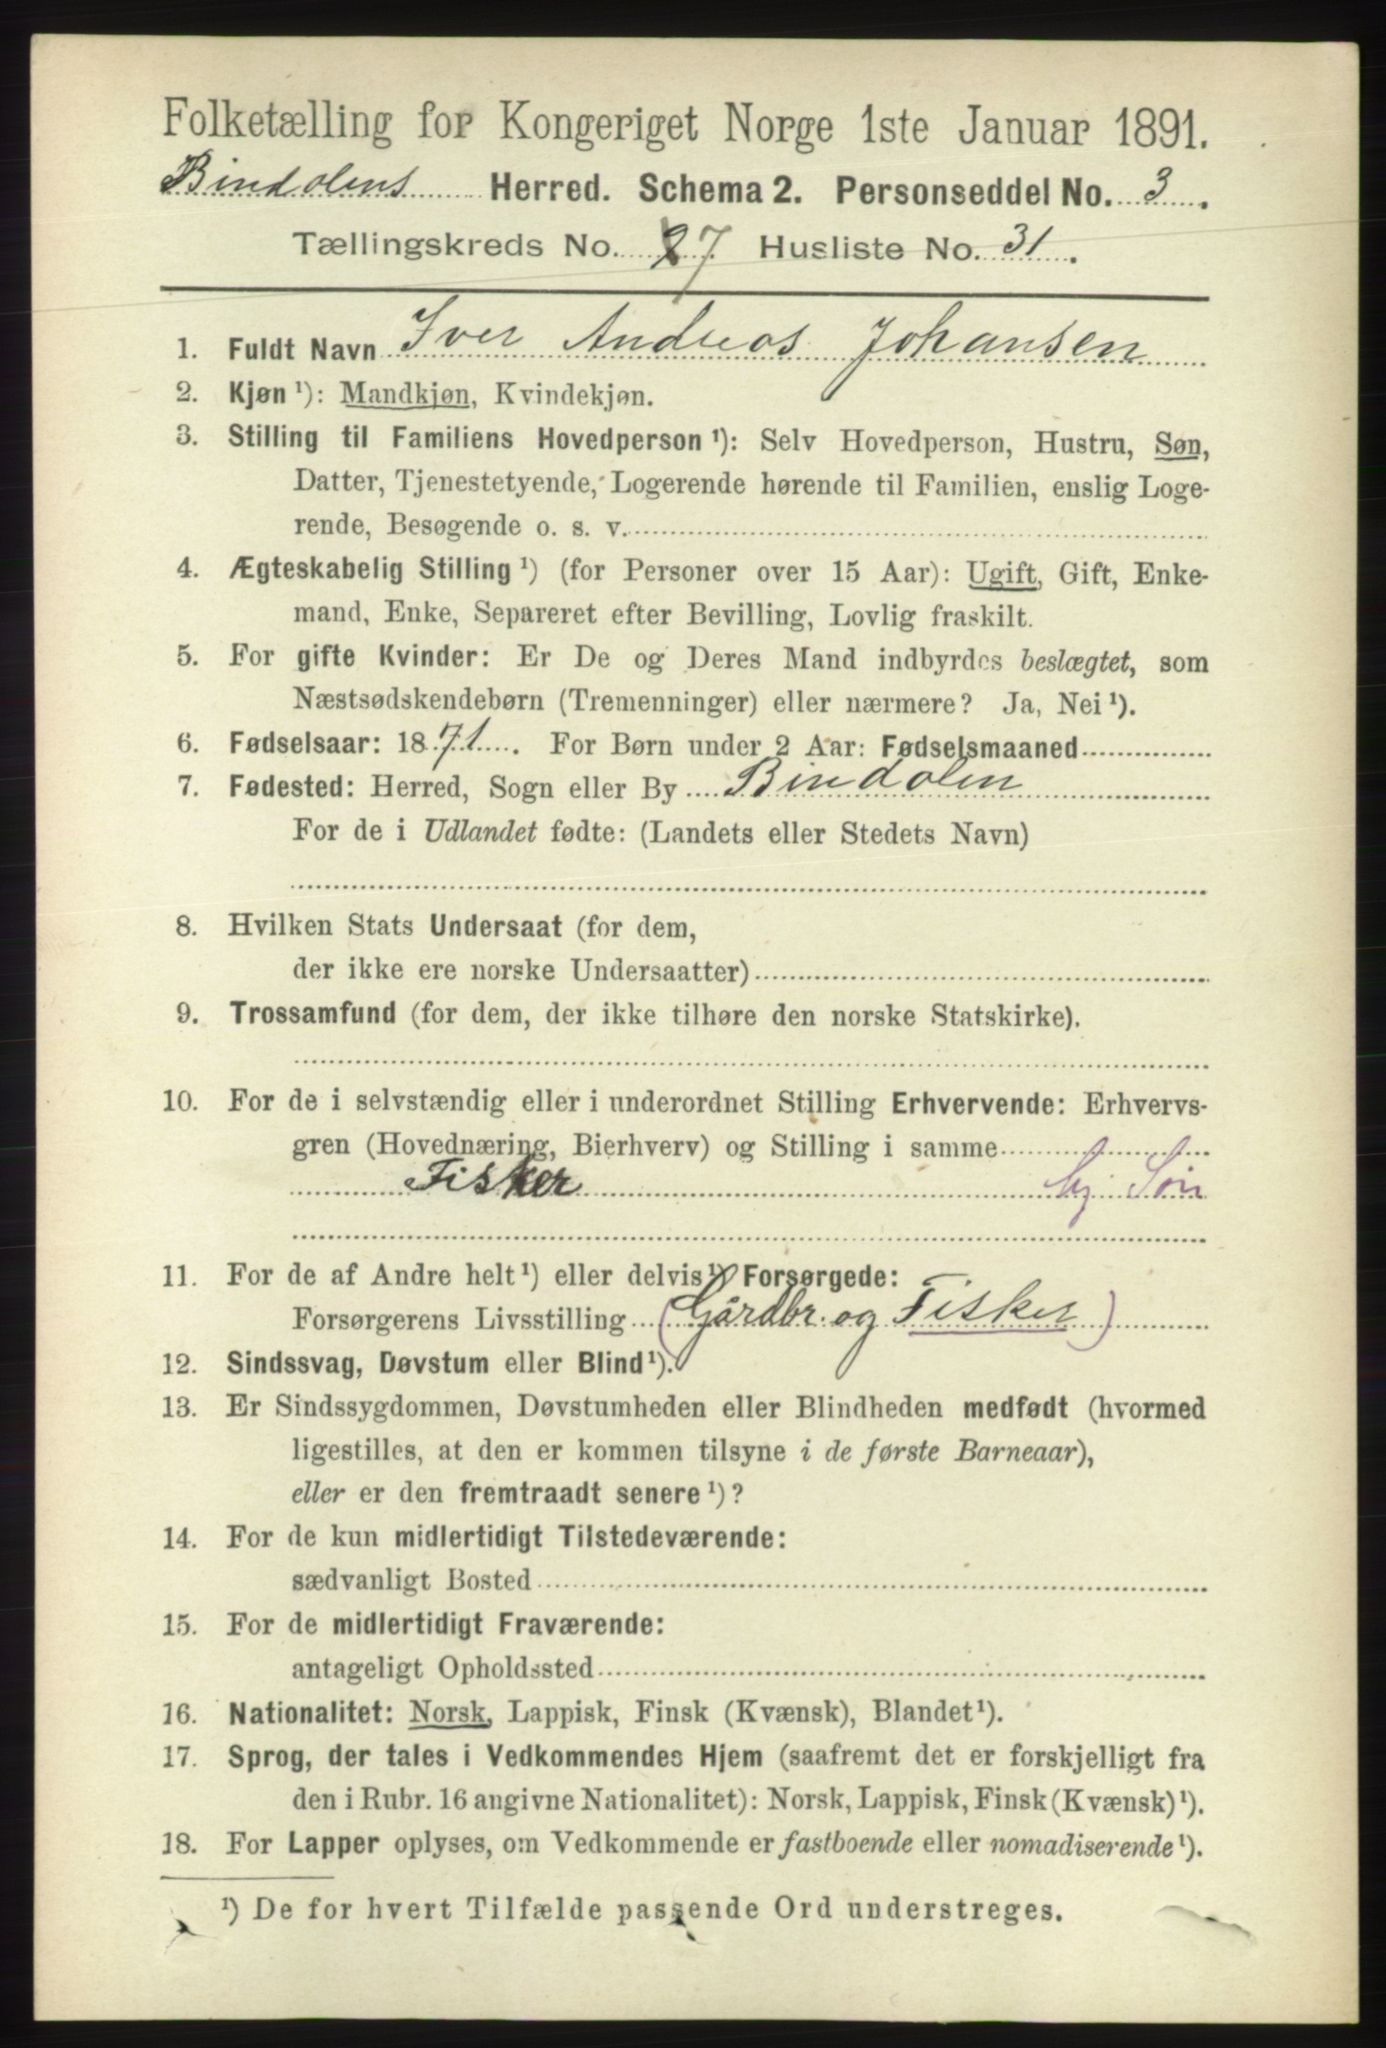 Folketælling for Kongeriget Norge 1ste Januar 1891.
Bindalens Herred. Schema 2. Personseddel No. 3.
Tællingskreds No. 7 Husliste No. 31.
1. Fuldt Navn Iver Andreas Johansen
2. Kjøn ¹): Mandkjøn, Kvindekjøn.
3. Stilling til Familiens Hovedperson ¹): Selv Hovedperson, Hustru, Søn,
Datter, Tjenestetyende, Logerende hørende til Familien, enslig Loge-
rende, Besøgende o. s. v.
4. Ægteskabelig Stilling ¹) (for Personer over 15 Aar): Ugift, Gift, Enke-
mand, Enke, Separeret efter Bevilling, Lovlig fraskilt.
5. For gifte Kvinder: Er De og Deres Mand indbyrdes beslægtet, som
Næstsødskendebørn (Tremenninger) eller nærmere? Ja, Nei ¹).
6. Fødselsaar: 1871. For Børn under 2 Aar: Fødselsmaaned
7. Fødested: Herred, Sogn eller By Bindalen
For de i Udlandet fødte: (Landets eller Stedets Navn)
8. Hvilken Stats Undersaat (for dem,
der ikke ere norske Undersaatter)
9. Trossamfund (for dem, der ikke tilhøre den norske Statskirke).
10. For de i selvstændig eller i underordnet Stilling Erhvervende: Erhvervs-
gren (Hovednæring, Bierhverv) og Stilling i samme
Fisker hj. Søn
11. For de af Andre helt ¹) eller delvis ¹) Forsørgede:
Forsørgerens Livsstilling (Gårdbr. og Fisker)
12. Sindssvag, Døvstum eller Blind ¹).
13. Er Sindssygdommen, Døvstumheden eller Blindheden medfødt (hvormed
ligestilles, at den er kommen tilsyne i de første Barneaar),
eller er den fremtraadt senere ¹)?
14. For de kun midlertidigt Tilstedeværende:
sædvanligt Bosted
15. For de midlertidigt Fraværende:
antageligt Opholdssted
16. Nationalitet: Norsk, Lappisk, Finsk (Kvænsk), Blandet ¹).
17. Sprog, der tales i Vedkommendes Hjem (saafremt det er forskjelligt fra
den i Rubr. 16 angivne Nationalitet): Norsk, Lappisk, Finsk (Kvænsk) ¹).
18. For Lapper oplyses, om Vedkommende er fastboende eller nomadiserende ¹).
¹) De for hvert Tilfælde passende Ord understreges.